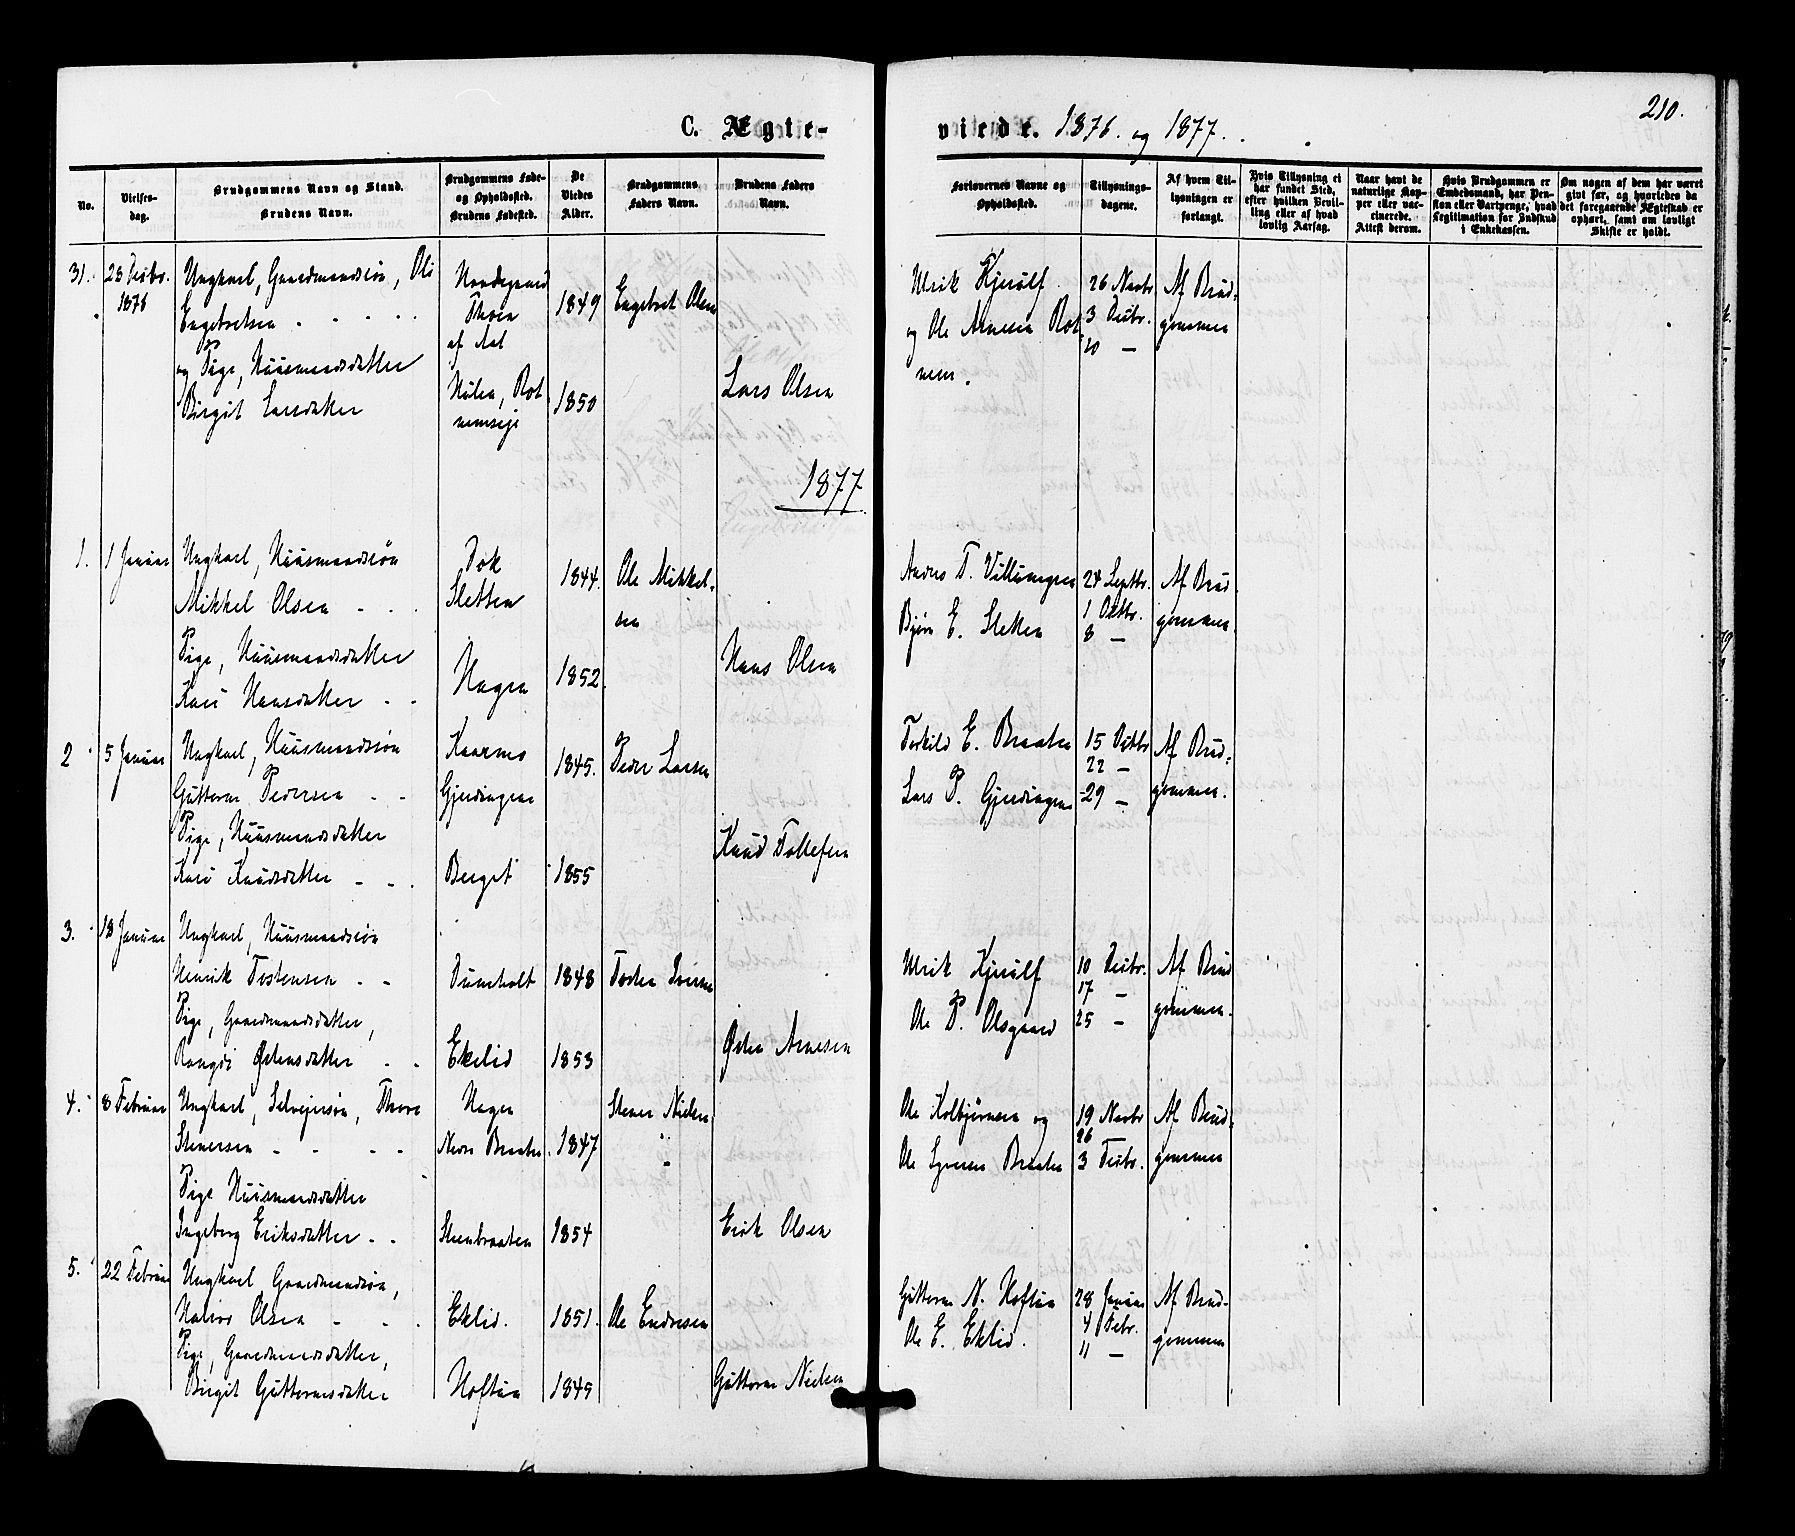 210.
C. Ægte-
viede. 1876. og 1877.
No.
Vielses-
dag.
Brudgommens Navn og Stand.
Brudens Navn.
Brudgommens Føde-
og Opholdssted.
Brudens Fødested.
De
Viedes
Alder.
Brudgommens
Faders Navn.
Brudens Faders
Navn.
Forlovernes Navne og
Opholdssted.
Tillysnings-
dagene.
Af hvem Til-
lysningen er
forlangt.
Hvis Tillysning ei
har fundet Sted,
efter hvilken Bevil-
ling eller af hvad
lovlig Aarsag.
Naar havt de
naturlige Kop-
per eller vac-
cinerede.
Attest derom.
Hvis Brudgommen er
Embedsmand, har Pen-
sion eller Vartpenge, hvad
Legitimation for Indskud
i Enkekassen.
Om nogen af dem har været
gift før, og hvorledes da
det foregaaende Ægteskab er
ophørt, samt om lovligt
Skifte er holdt.
31.
28 Desbr.
1876
Ungkarl, Gaardmandssøn, Ole
Engebretsen
og Pige, Huusmandsdatter
Birgit Larsdatter
Thoen
af Aal
Rot
nemseje
1849
1850
Engebret Olsen
Lars Olsen
Ulrik Kjerulf
og Ole Arnesen Rot
nem.
26 Novbr
3 Desbr.
10 —
Af Brud-
gommen
1877
1.
1 Januar
Ungkarl, Huusmandssøn
Mikkel Olsen
Pige, Huusmandsdatter
Kari Hansdatter
Dok
Sletten
Hagen
1844.
1852
Ole Mikkel-
sen
Hans Olsen
Andres T. Villungen
Bjørn E. Sletten
24 Septbr.
1 Octbr.
8 —
Af Brud-
gommen.
2
5 Januar
Ungkarl, Huusmandssøn
Guttorm Pedersen
Pige, Huusmandsdatter
Kari Knudsdatter
Gjerdingen
Berget
1845.
1855
Peder Larsen
Knud Tollefsen
Torkild E. Braaten
Lars P. Gjerdingen
15 Octbr
22 —
29 —
Af Brud-
gommen.
3.
18 Januar
Ungkarl, Huusmandssøn
Henrik Tostensen
Pige, Gaardmandsdatter,
Rangdi Østensdatter
Ekelid
1848
1853
Tosten Iversen
Østen Arnesen
Ulrik Kjerulf
Ole P. Olsgaard
10 Desbr.
17 —
25 —
Af Brud
gommen.
4.
8 Februar
Ungkarl, Selvejersøn, Thore
Stenersen
Pige Huusmandsdatter
Ingeborg Eriksdatter
Hagen
Nedre Braaten
Steenbraaten
1847
1854
Stener Nielsen
Erik Olsen
Ole Kolbjørnsen og
Ole Syversen Braaten
19 Novbr
26
3 Desbr.
Af Brud-
gommen
5.
22 Februar
Ungkarl Gaardmandssøn,
Halvor Olsen
Pige, Gaardmandsdatter,
Birgit Guttormsdatter
Eklid.
Hoftun
1851.
1849
Ole Endresen
Guttorm Nielsen
Guttorm N. Hoftun
Ole E. Eklid.
28 Januar
4 Febr.
11 —
Af Brud-
gommen